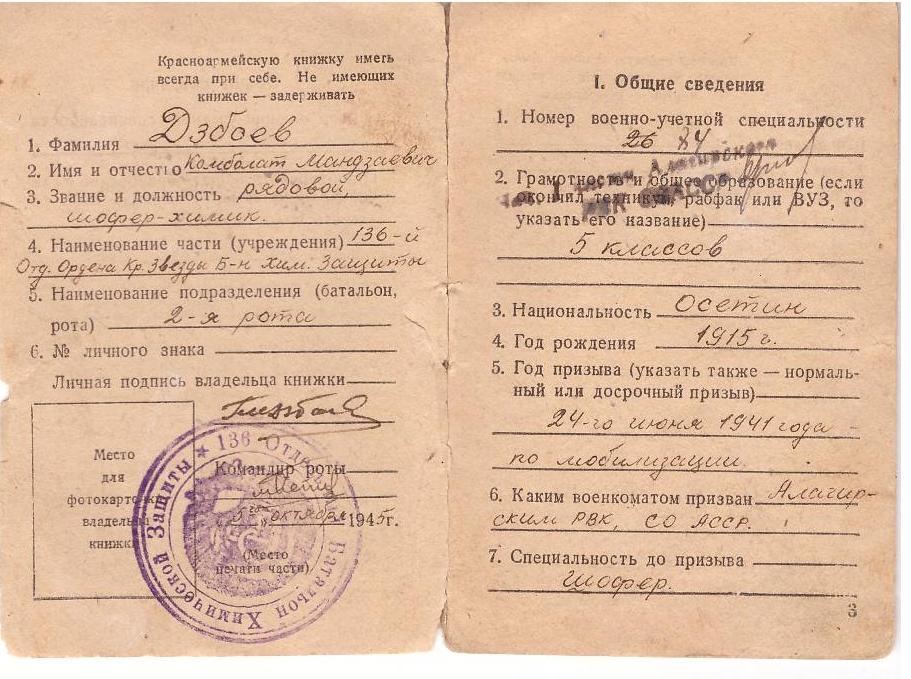 Красноармейскую книжку иметь
всегда при себе. Не имеющих
книжек — задерживать
1. Фамилия Дзбоев
2. Имя и отчество Камболат Мандзаевич
3. Звание и должность рядовой,
шофер-химик.
4. Наименование части (учреждения) 136-й
Отд. Ордена Кр. Звезды Б-н Хим. Защиты
5. Наименование подразделения (батальон,
рота) 2-я рота
6. № личного знака
Личная подпись владельца книжки
Место
для
фотокарточки
владельца
книжки
Командир роты
5 октября 1945г.
(Место
печати части)
136 Отде
Батальон Химической Защиты
I. Общие сведения
1. Номер военно-учетной специальности
26 84
2. Грамотность и общее образование (если
окончил техникум, рабфак или ВУЗ, то
указать его название)
5 классов
Алагирского
РВК
3. Национальность Осетин
4. Год рождения 1915 г.
5. Год призыва (указать также — нормаль-
ный или досрочный призыв)
24-го июня 1941 года -
по мобилизации.
6. Каким военкоматом призван Алагир-
ским РВК, СО АССР.
7. Специальность до призыва
Шофер.
3